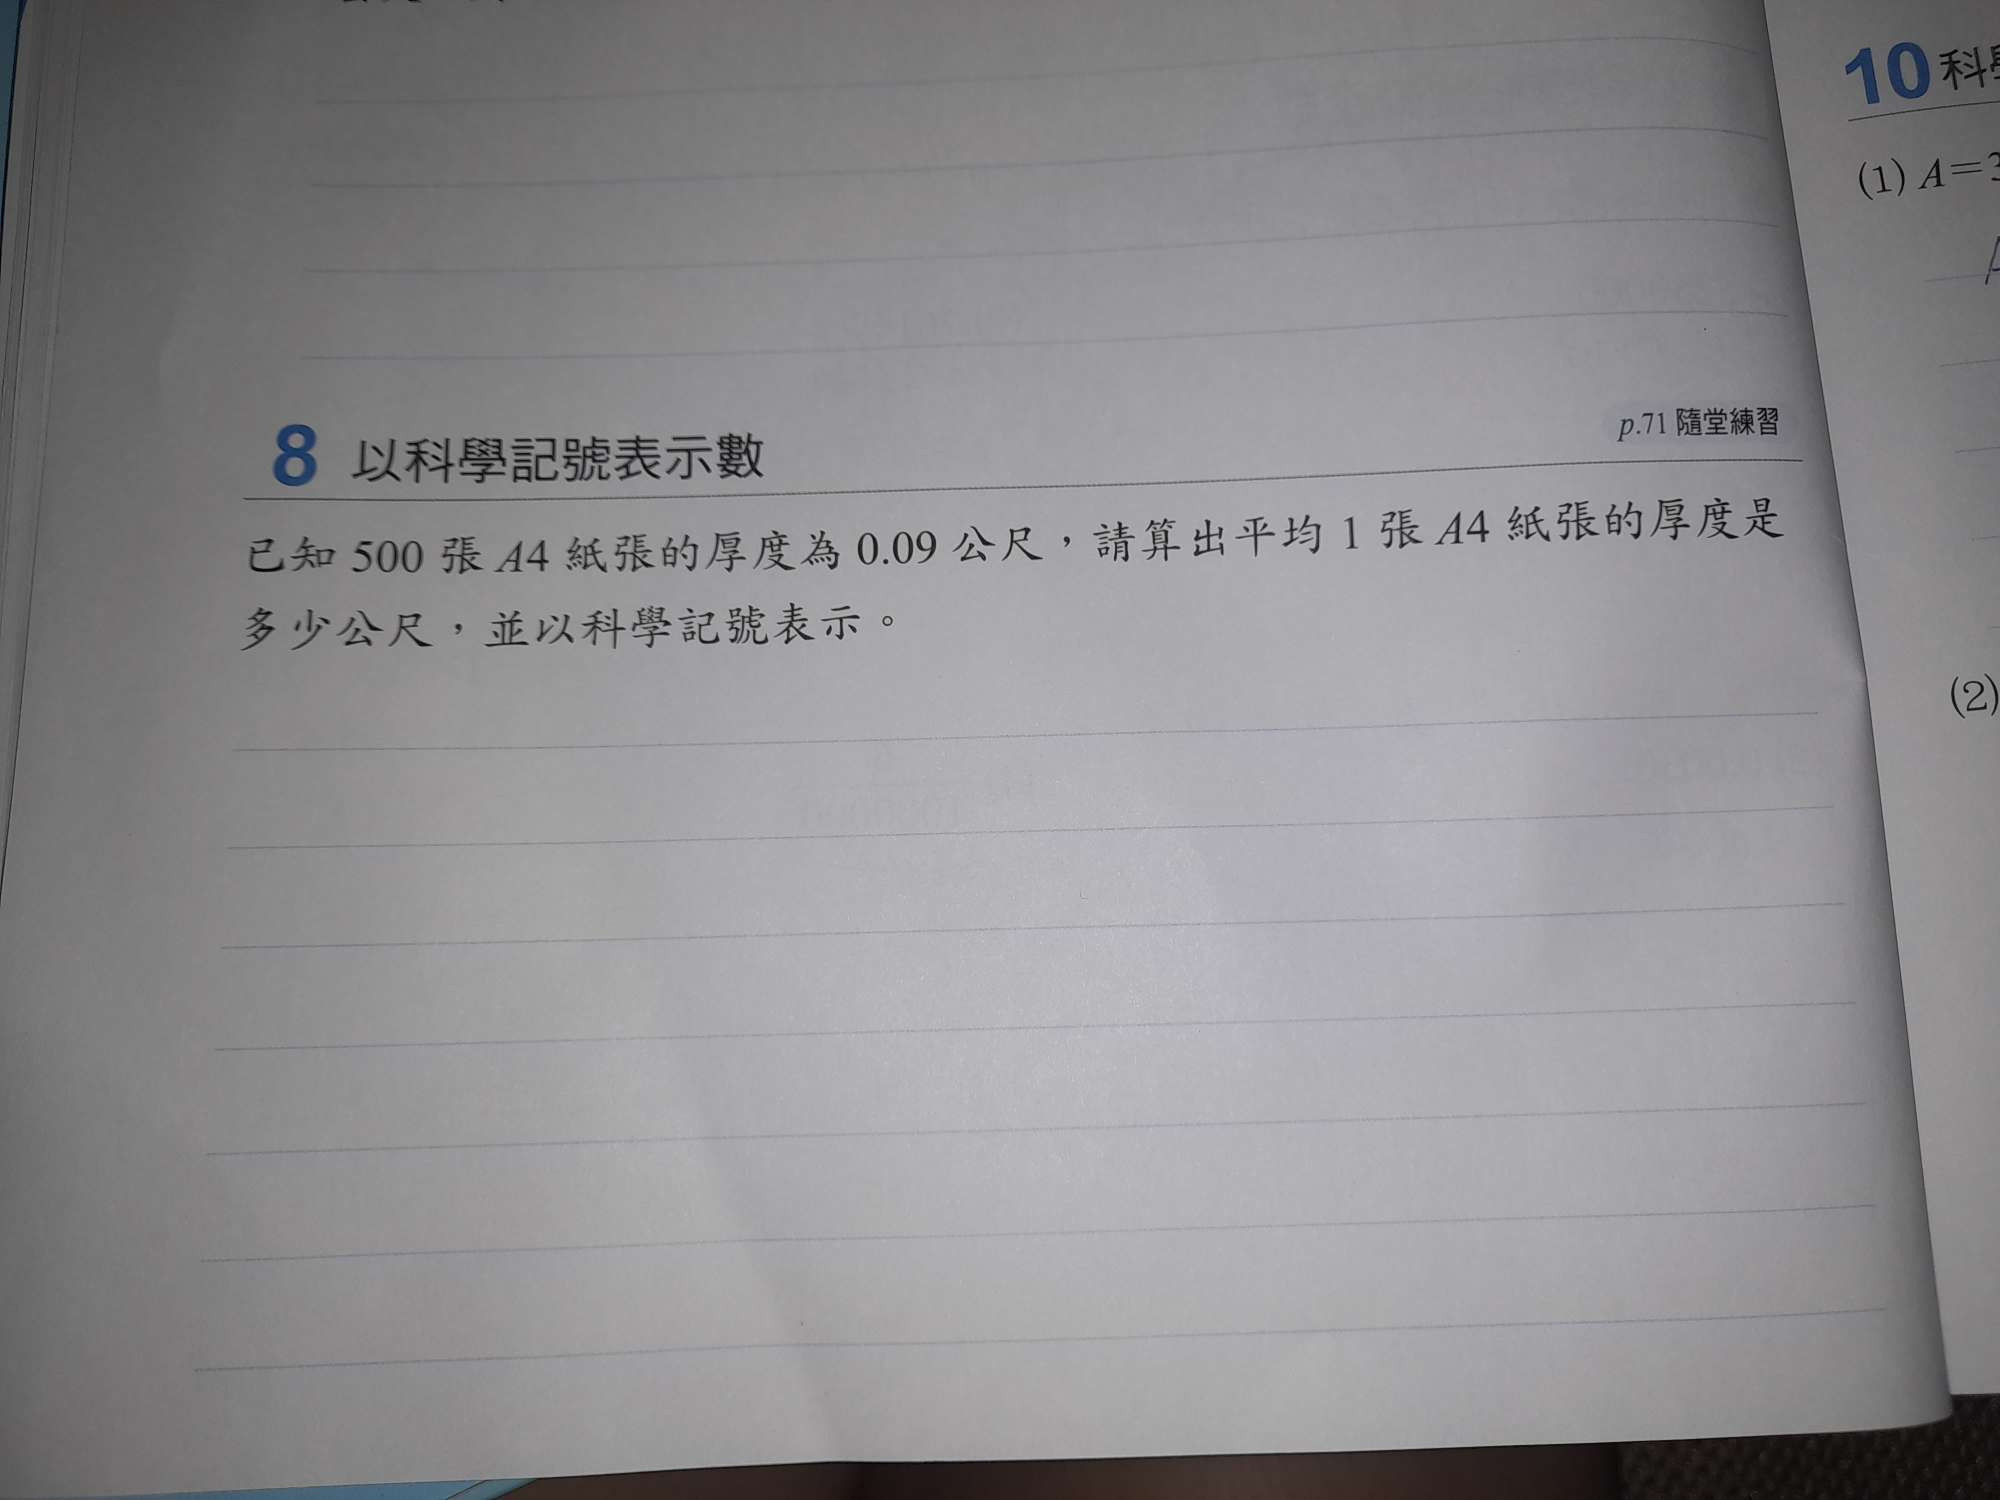 8 以科學記號表示數
p.71 隨堂練習
已知 500 張 A4 紙張的厚度為 0.09 公尺，請算出平均 1 張 A4 紙張的厚度是
多少公尺，並以科學記號表示。
10 科
(1) A=3
(2)